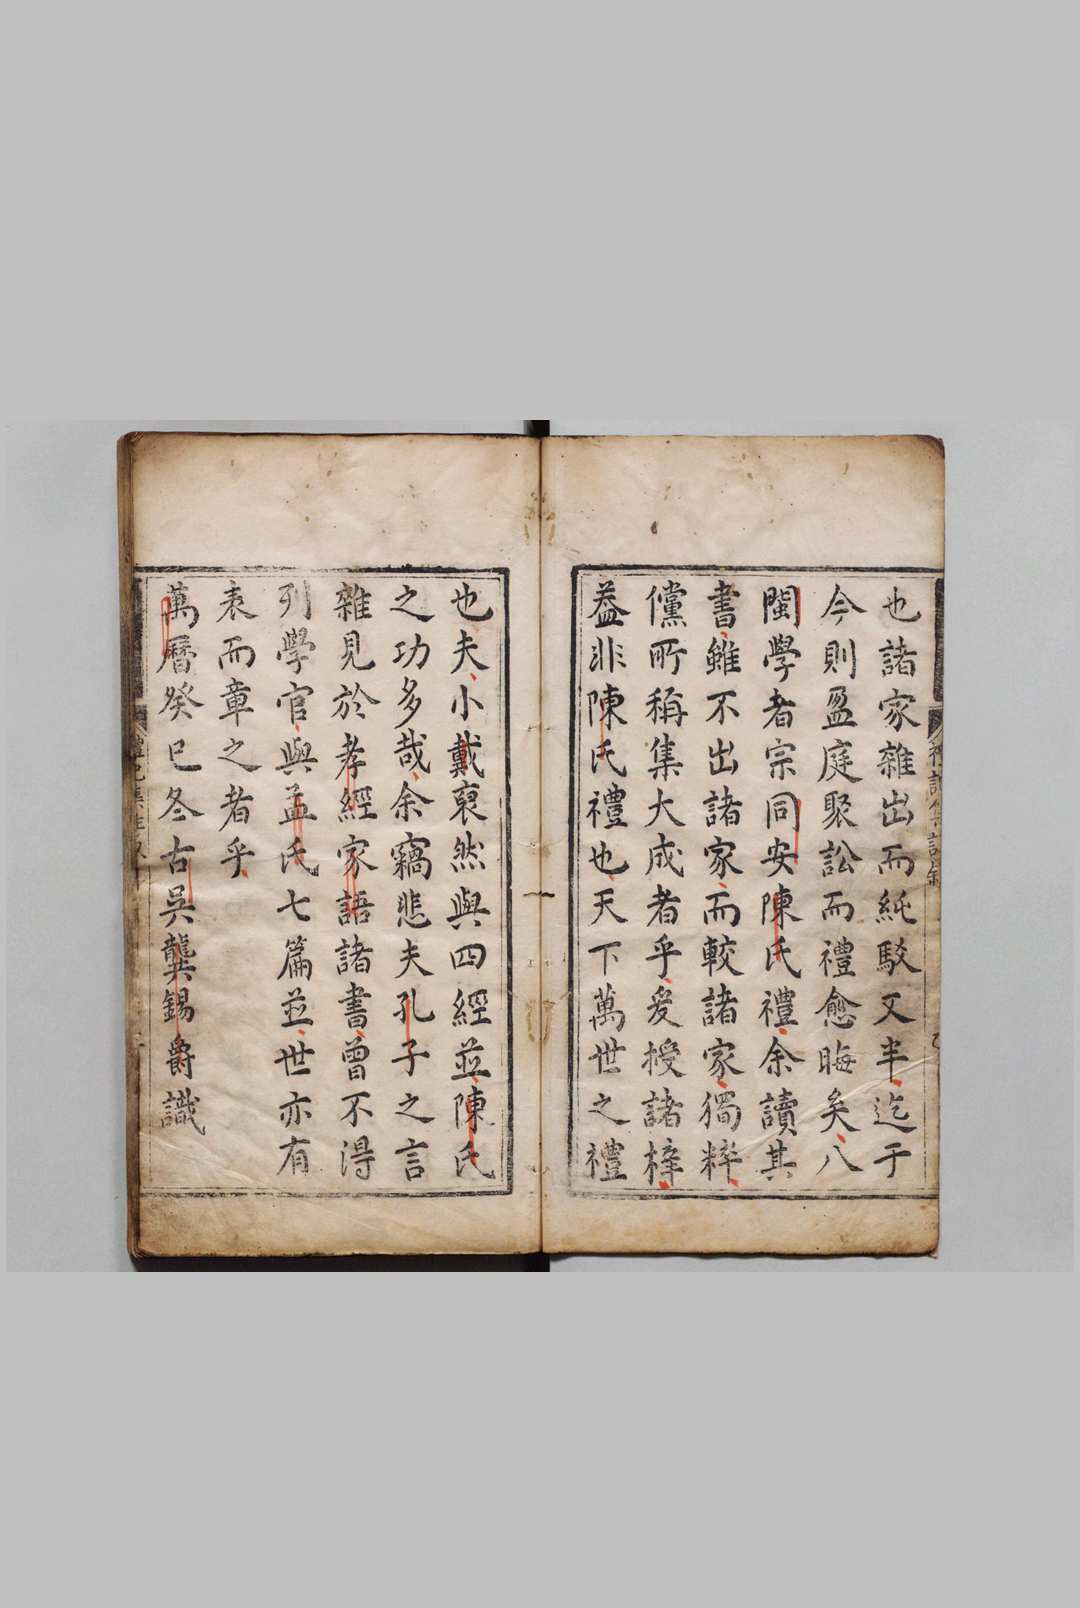 也諸家雜出而紕駁又半迄于
今則盈庭聚訟而禮愈晦矣八
閩學者宗同安陳氏禮余讀其
書雖不出諸家而較諸家獨粹
儻所稱集大成者乎爰授諸梓
益非陳氏禮也天下萬世之禮
也夫小戴裒然與四經並陳氏
之功多哉余竊悲夫孔子之言
雜見於孝經家語諸書曾不得
列學官與孟氏七篇並世亦有
表而章之者乎
萬曆癸巳冬古吳龔錫爵識